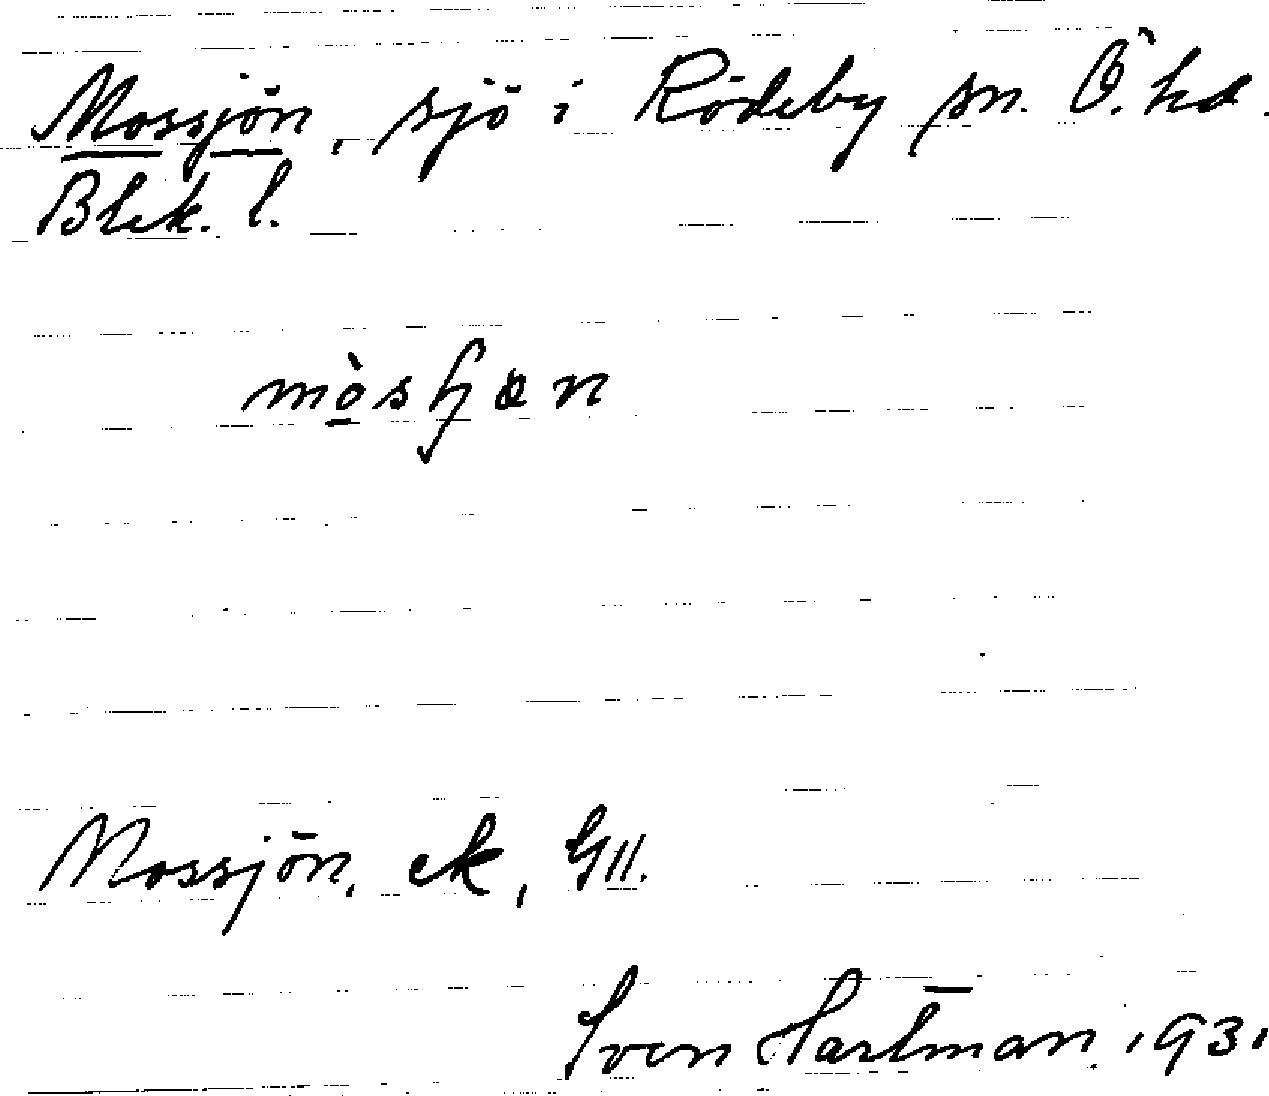 Mossjön, sjö i Rödeby sn. Ö. hd.
Blek. l.
Mossjön. ek, GII.
Sven Hartman. 1931